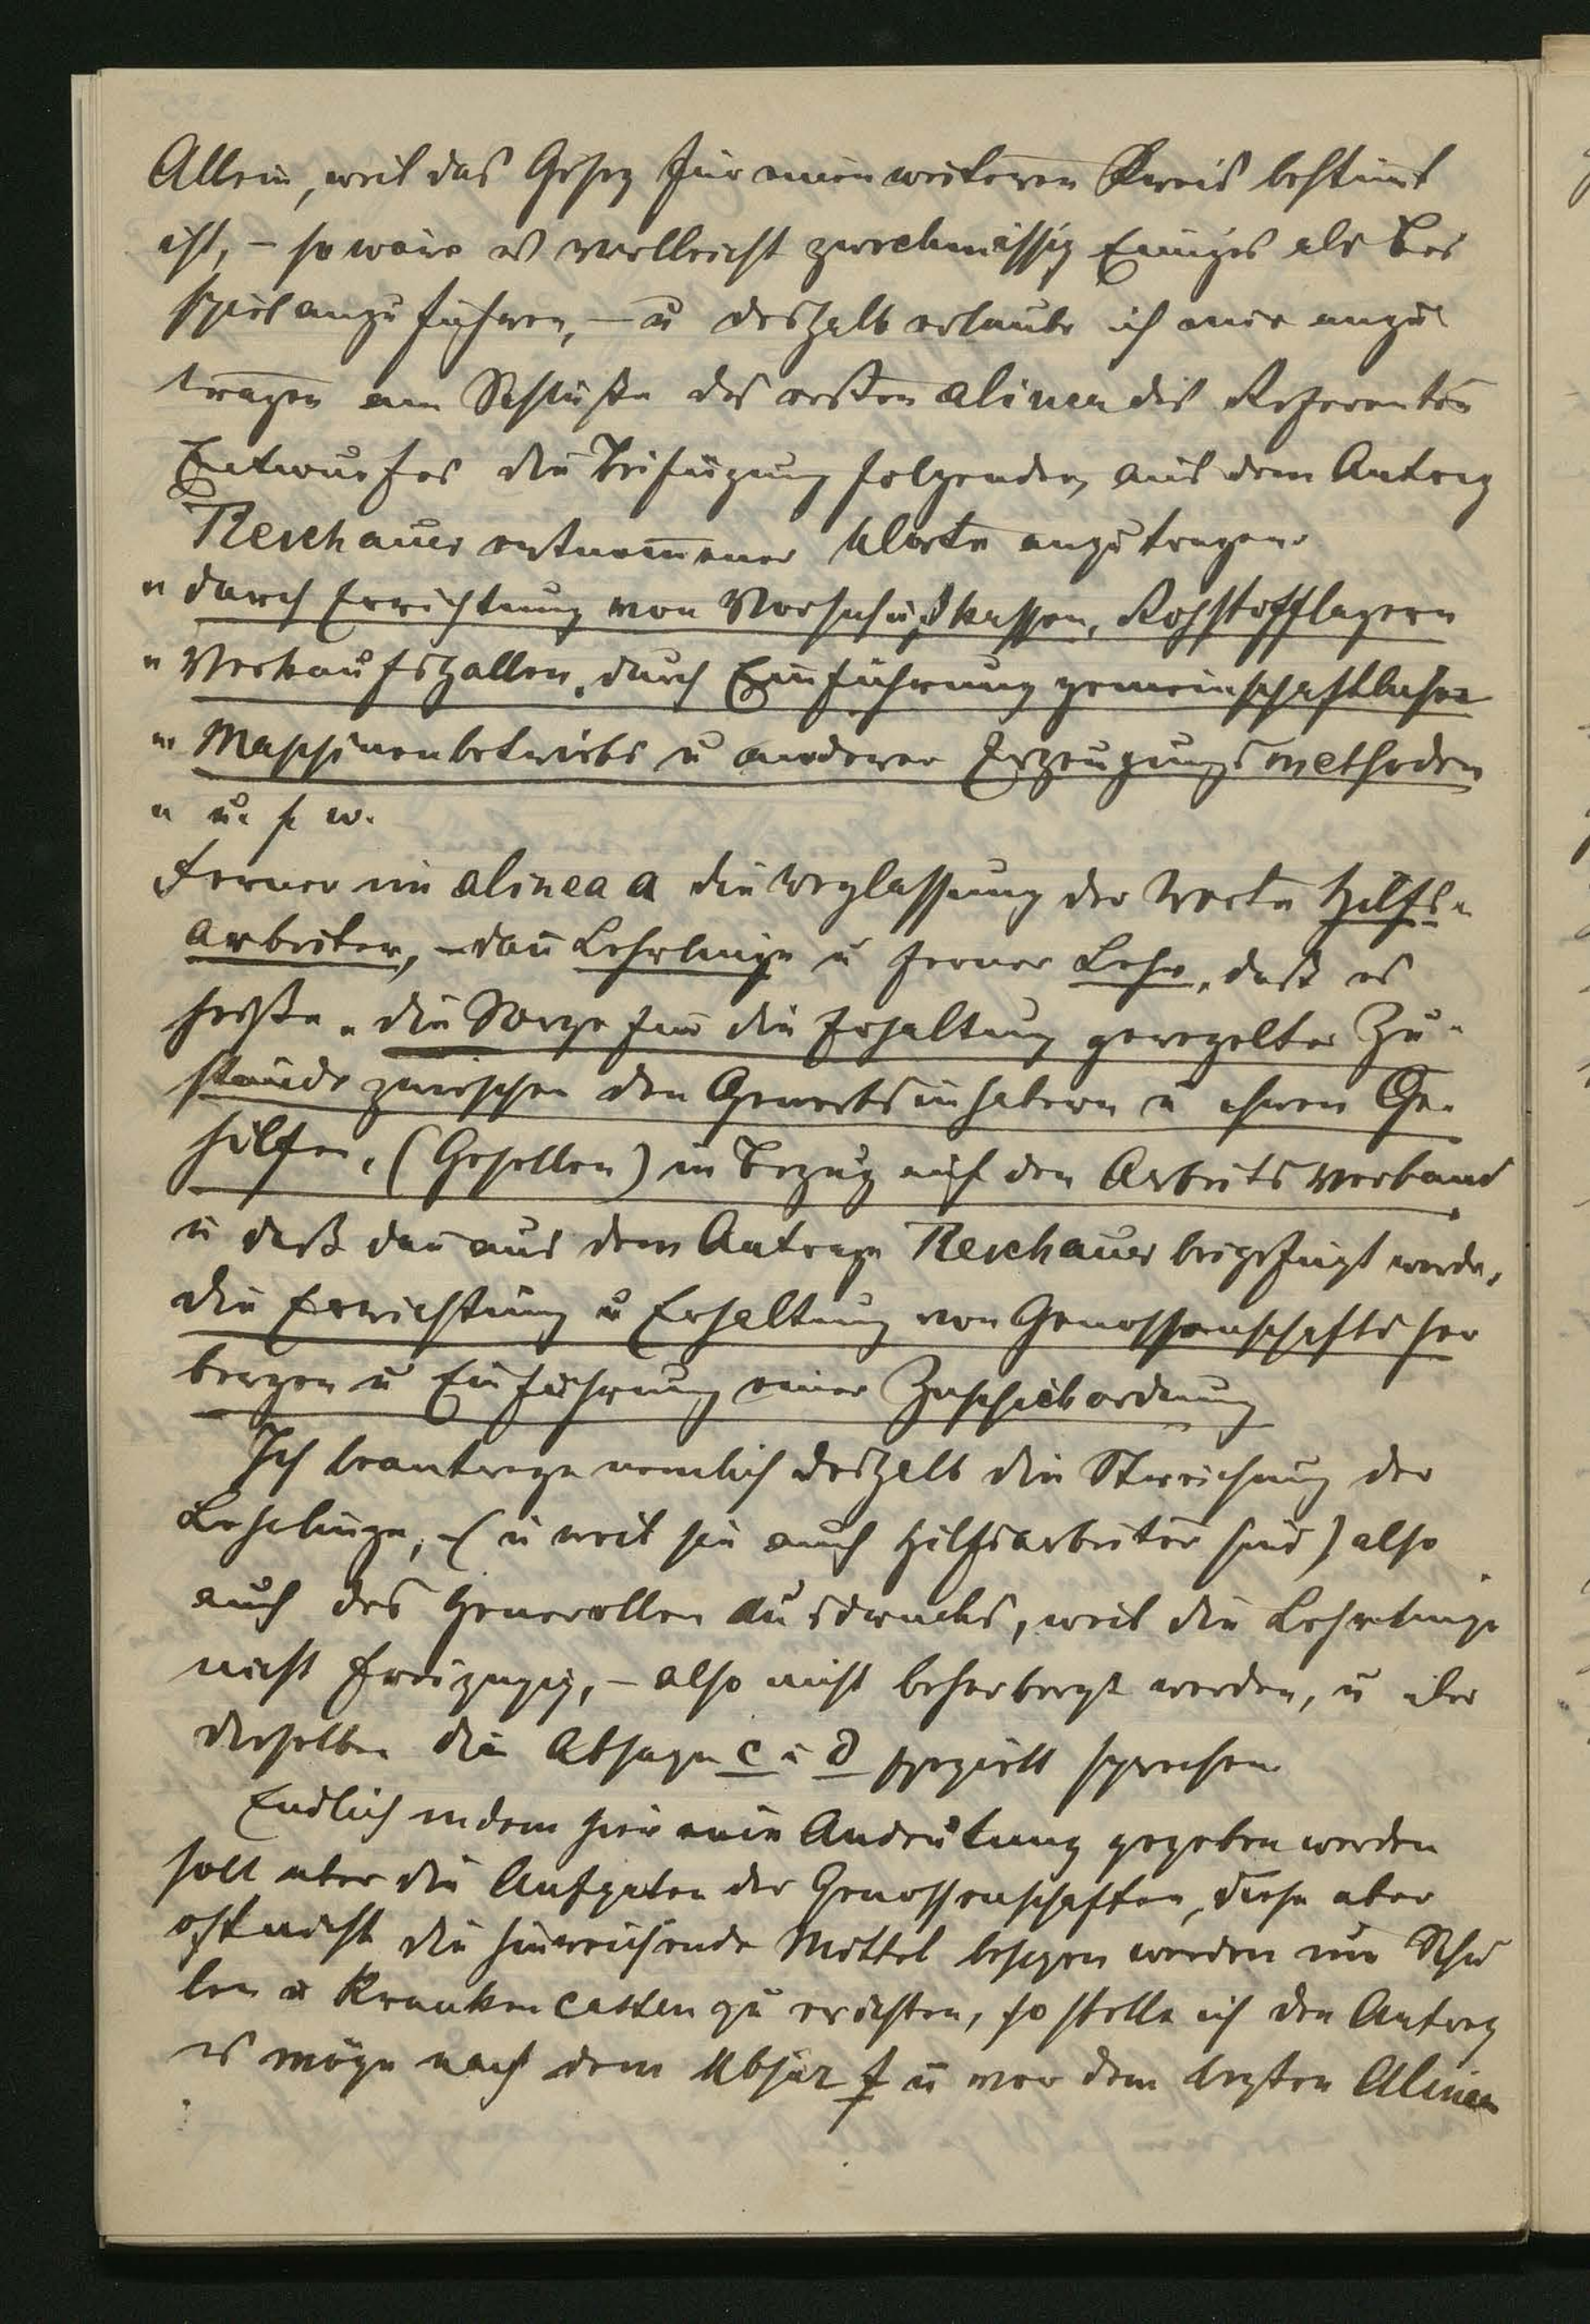 Allein, weil das Gesez für einen weiteren Kreis bestimt
ist, – so wäre es vielleicht zweckmässig Einiges als Bei
spiel anzuführen, – u deshalb erlaube ich mir anzu
tragen am Schluße des ersten alinea des Referenten
Entwurfes die Beifügung folgender, aus dem Antrag
Reschauer entnom̄ener Worte anzutragen
" durch Errichtung von Vorschußkassen, Rohstofflagern
" Verkaufshallen, durch Einführung gemeinschaftlicher
" Maschinenbetriebs u anderer Erzeugungsmethoden
" u. s w.
Ferner im alinea a die Weglassung der Worte Hilfs-
arbeiter, – dan̄ Lehrlinge u ferner Lehr, daß es
heiße „die Sorge für die Erhaltung geregelter Zu-
stände zwischen den Gewerbsinhabern u ihren Ge-
hilfen, (Gesellen) in Bezug auf den Arbeitsverband
u daß dan̄ aus dem Antrage Reschauer beigefügt werde,
die Errichtung u Erhaltung von Genossenschaftsher
bergen u Einführung einer Zuschickordnung
Ich beantrage nemlich deshalb die Streichung der
Lehrlinge, – (u weil sie auch Hilfsarbeiter sind) also
auch des Generellen Ausdrucks, weil die Lehrlinge
nicht freizügig, – also nicht beherbergt werden, u über
dieselben die Absäze c u d speziell sprechen
Endlich indem hier eine Andeutung gegeben werden
soll über die Aufgaben der Genossenschaften, diese aber
oft nicht die hinreichende Mittel besizen werden um Schu
len u Krankencassen zu errichten, so stelle ich den Antrag
es möge nach dem Absaz f u vor dem lezten Alinea